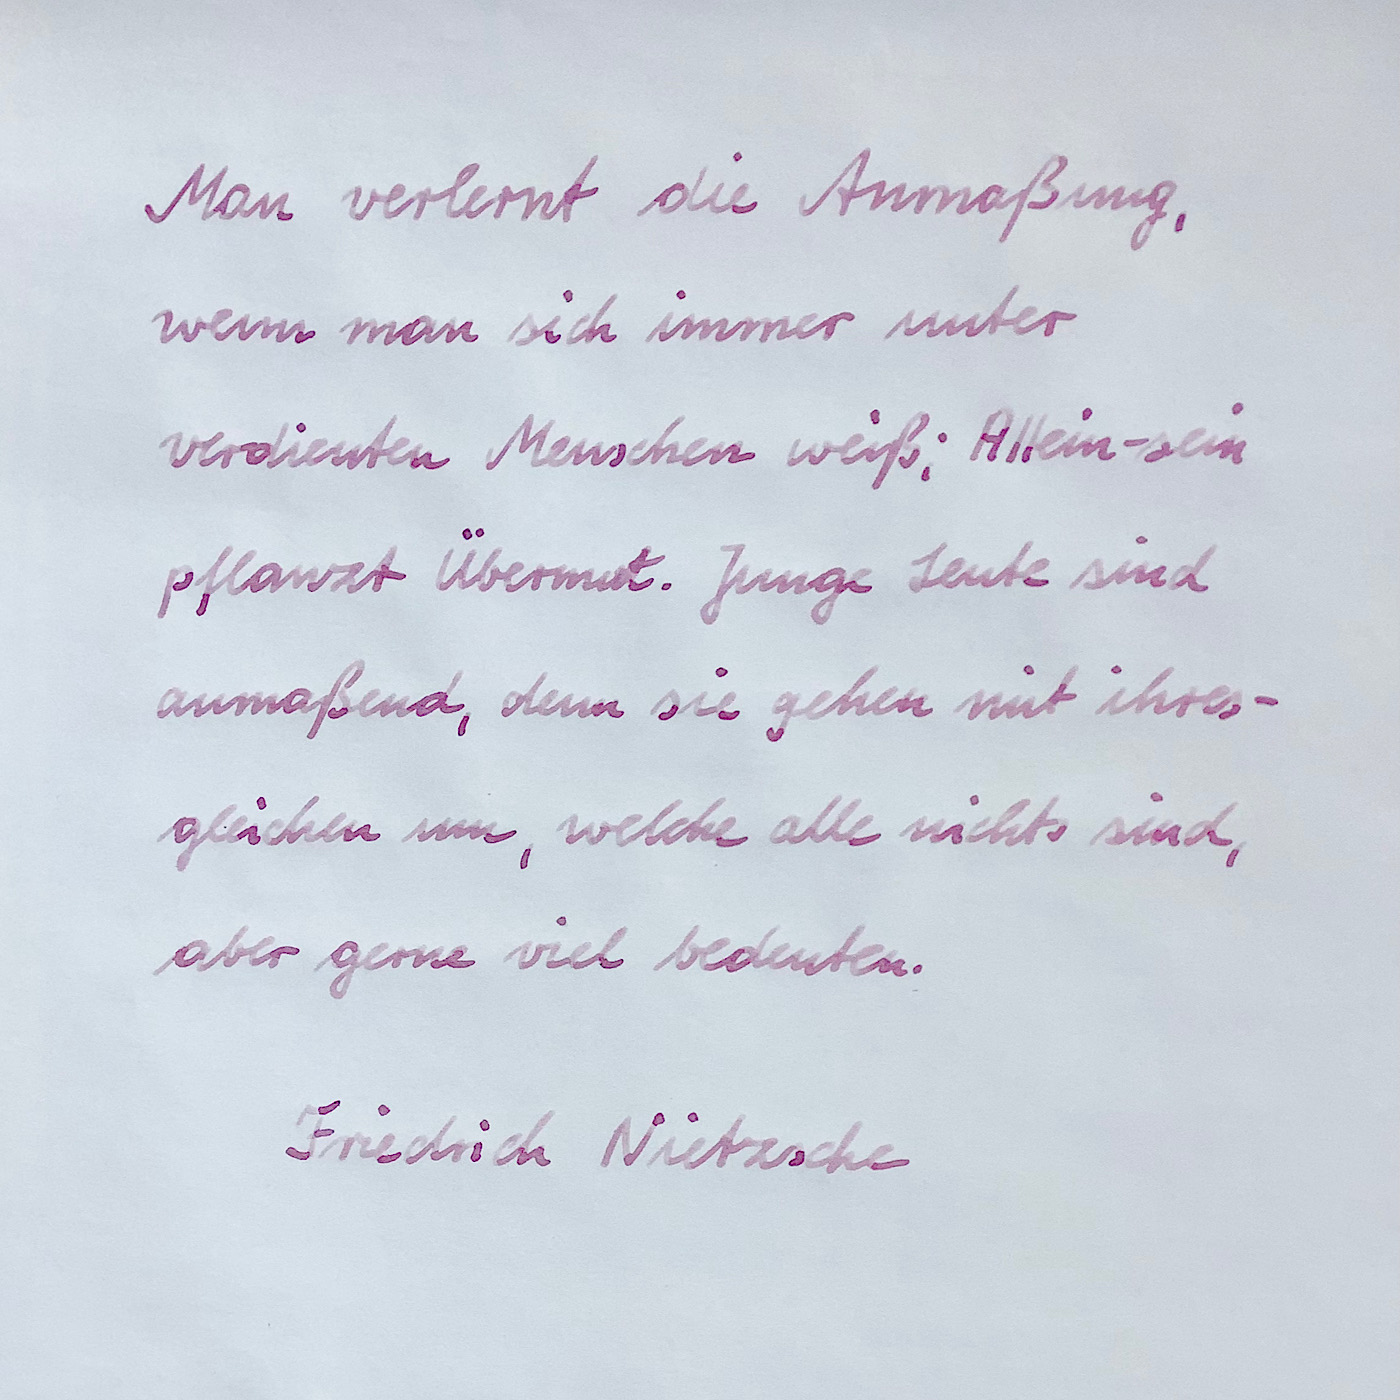 Man verlernt die Anmaßung,
wenn man sich immer unter
verdienten Menschen weiß; Allein-sein
pflanzt Übermut. Junge Leute sind
anmaßend, denn sie gehen mit ihres-
gleichen um, welche alle nichts sind,
aber gerne viel bedeuten.
Friedrich Nietzsche